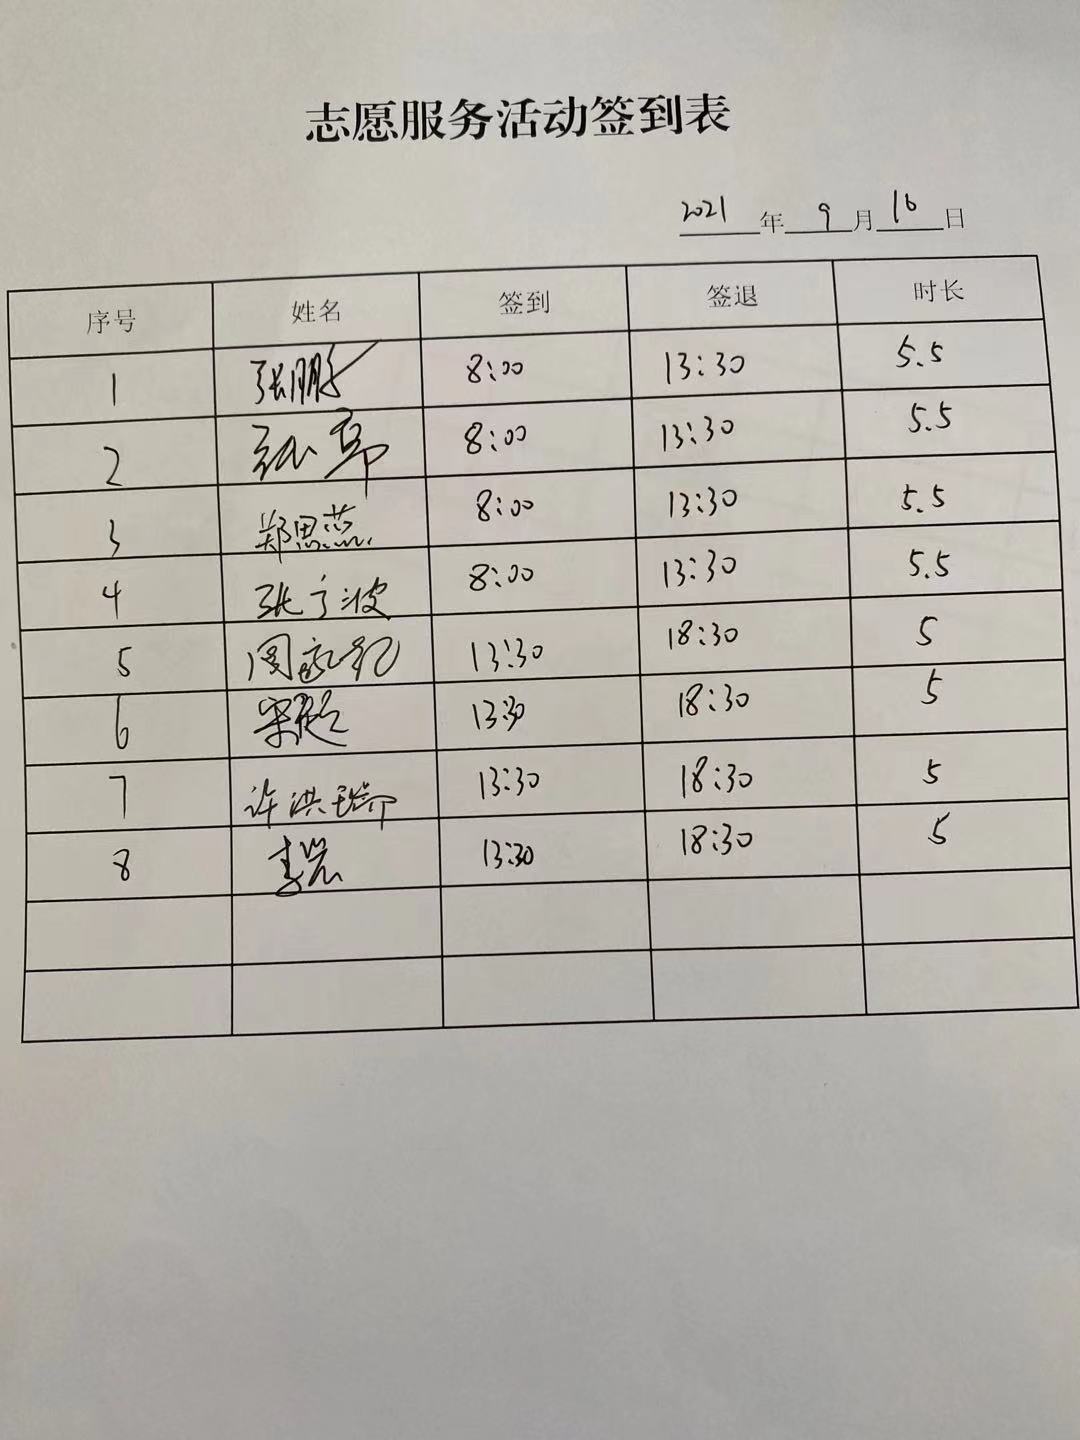 志愿服务活动签到表
2021年9月16日
序号 姓名 签到 签退 时长
1 张鹏 8:00 13:30 5.5
2 8:00 13:30 5.5
3 郑思燕 8:00 13:30 5.5
4 张广波 8:00 13:30 5.5
5 13:30 18:30 5
6 13:30 18:30 5
7 许洪瑞 13:30 18:30 5
8 13:30 18:30 5